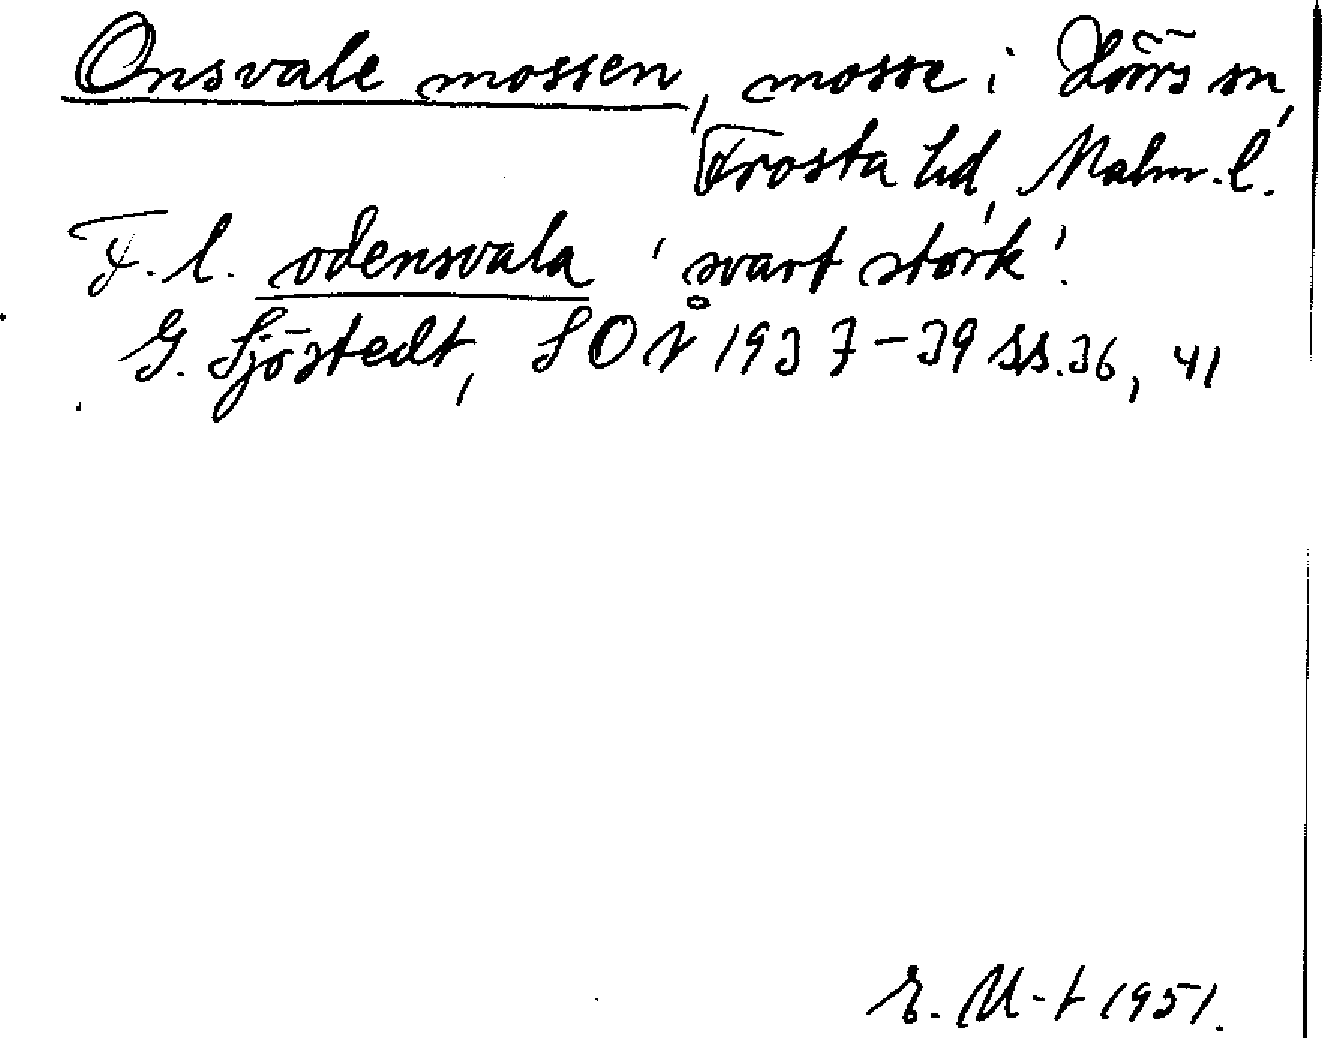 Onsvale mossen, mosse i Höörs sn,
Frosta hd, Malm. l.
F. l. odensvala 'svart stork'.
G. Sjöstedt, SOÅ 1937-39 ss. 36, 41
E. M-t 1951.